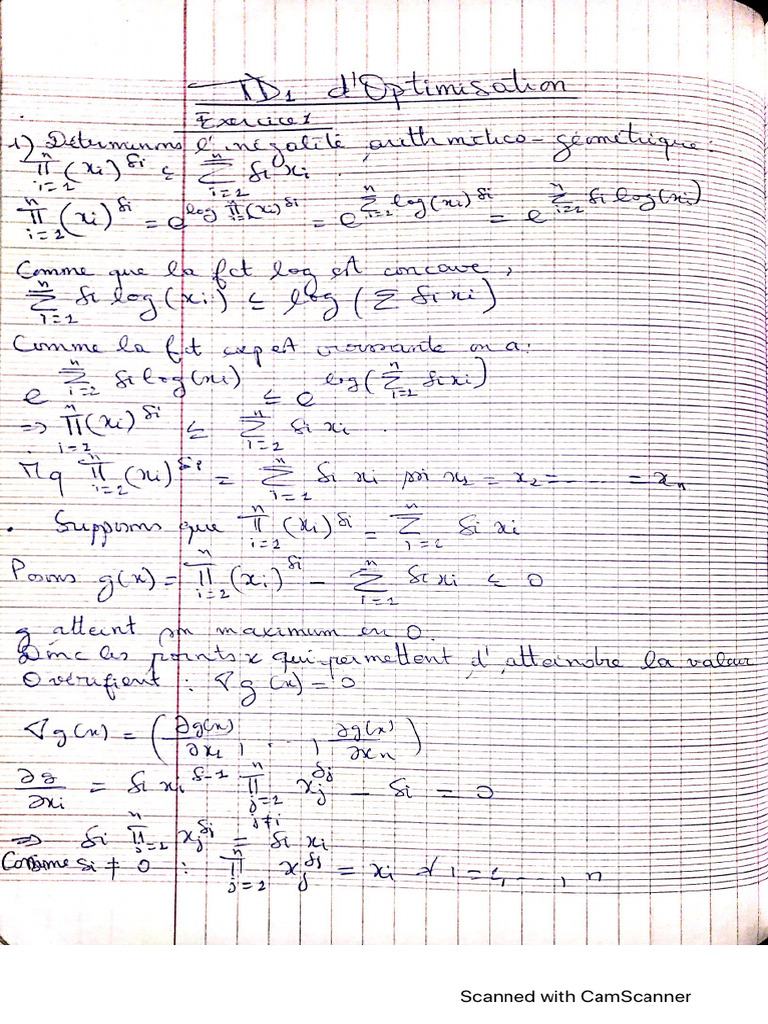 TD1 d'Optimisation
Exercice 1
1) Déterminons l'inégalité arithmético-géométrique:
∏_{i=1}^{n} (xi)^{δi} ≤ ∑_{i=1}^{n} δi xi.
∏_{i=1}^{n} (xi)^{δi} = e^{log ∏_{i=1}^{n} (xi)^{δi}} = e^{∑_{i=1}^{n} log(xi)^{δi}} = e^{∑_{i=1}^{n} δi log(xi)}
Comme que la fct log est concave,
∑_{i=1}^{n} δi log(xi) ≤ log(∑ δi xi)
Comme la fct exp est croissante on a:
e^{∑_{i=1}^{n} δi log(xi)} ≤ e^{log(∑_{i=1}^{n} δi xi)}
=> ∏_{i=1}^{n} (xi)^{δi} ≤ ∑_{i=1}^{n} δi xi.
Mq ∏_{i=1}^{n} (xi)^{δi} = ∑_{i=1}^{n} δi xi ssi x1 = x2 = ..... = xn
. Supposons que ∏_{i=1}^{n} (xi)^{δi} = ∑_{i=1}^{n} δi xi
Posons g(x) = ∏_{i=1}^{n} (xi)^{δi} - ∑_{i=1}^{n} δi xi ≤ 0
g atteint son maximum en 0.
Donc les points x qui permettent d'atteindre la valeur
0 vérifient : ∇g(x) = 0
∇g(x) = (∂g(x)/∂x1, ..., ∂g(x)/∂xn)
∂g/∂xi = δi xi^{δ-1} ∏_{j=1, j≠i}^{n} xj^{δj} - δi = 0
=> δi ∏_{j=1}^{n} xj^{δj} = δi xi
Comme δi ≠ 0 : ∏_{j=1}^{n} xj^{δj} = xi ∀ i = 1, ..., n
Scanned with CamScanner